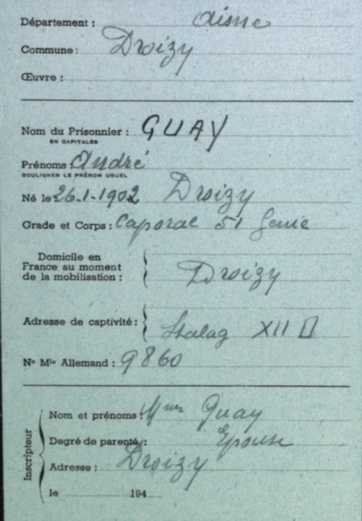 Département : aisne
Commune : Droizy
Œuvre :
Nom du Prisonnier : GUAY
EN CAPITALES
Prénoms : André
SOULIGNER LE PRÉNOM USUEL
Né le 26-1-1902 Droizy
Grade et Corps : Caporal 51 Génie
Domicile en
France au moment
de la mobilisation : Droizy
Adresse de captivité : Stalag XII D
Nº Mle Allemand : 9860
Inscripteur
Nom et prénoms : Mme Guay
Degré de parenté : Epouse
Adresse : Droizy
le 194